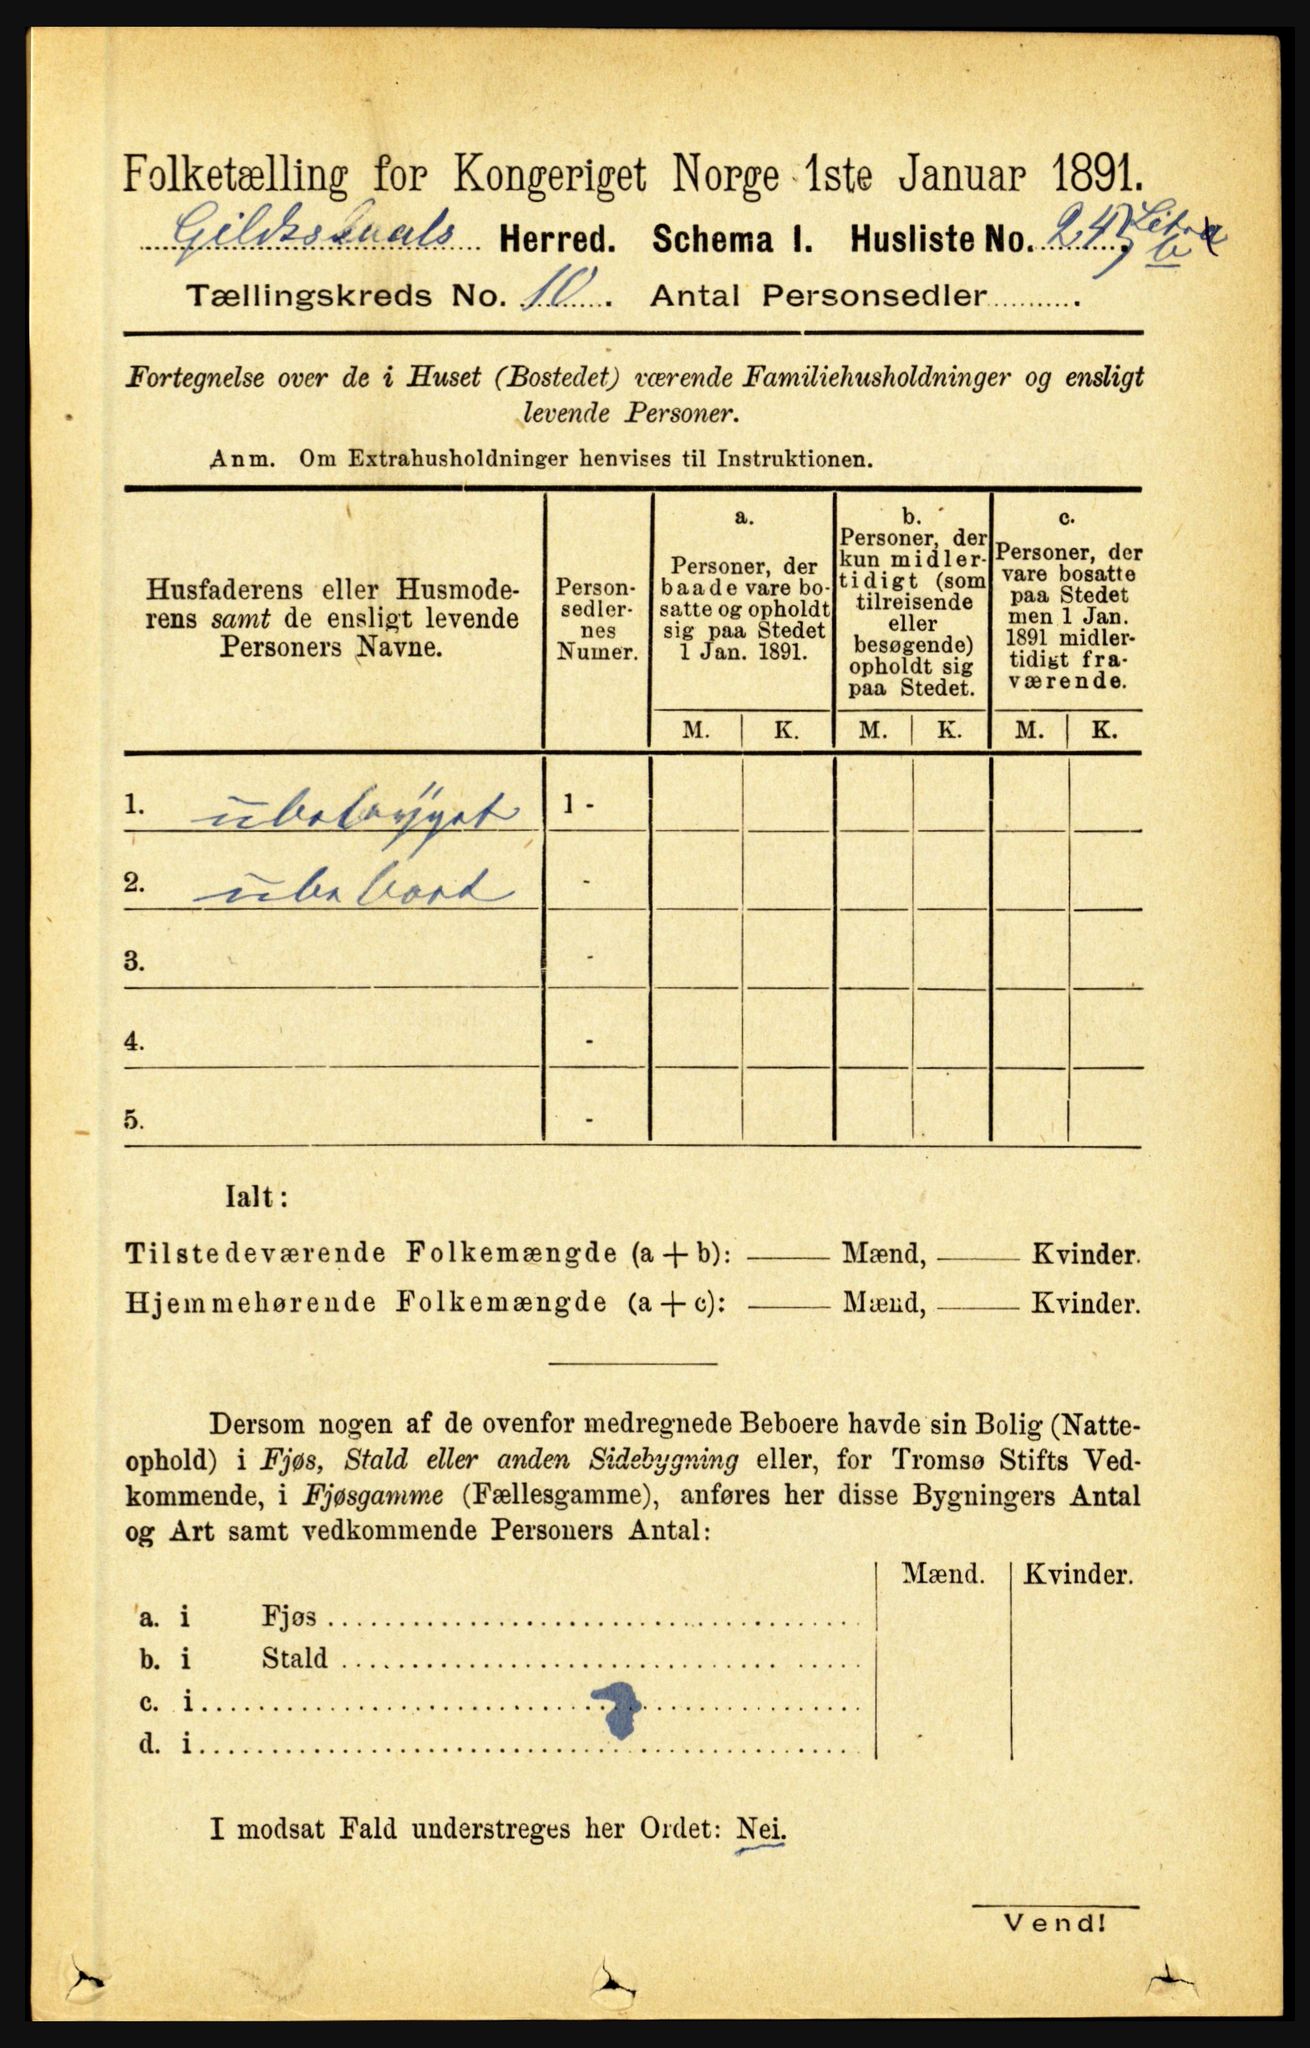 Folketælling for Kongeriget Norge 1ste Januar 1891.
Gildeskaals Herred. Schema I. Husliste No. 24, Litra b
Tællingskreds No. 10. Antal Personsedler..........
Fortegnelse over de i Huset (Bostedet) værende Familiehusholdninger og ensligt
levende Personer.
Anm. Om Extrahusholdninger henvises til Instruktionen.
Husfaderens eller Husmode-
rens samt de ensligt levende
Personers Navne.
Person-
sedler-
nes
Numer.
a.
Personer, der
baade vare bo-
satte og opholdt
sig paa Stedet
1 Jan. 1891.
b.
Personer, der
kun midler-
tidigt (som
tilreisende
eller
besøgende)
opholdt sig
paa Stedet.
c.
Personer, der
vare bosatte
paa Stedet
men 1 Jan.
1891 midler-
tidigt fra-
værende.
M. K. M. K. M. K.
1. ubebygget 1 -
2. ubeboet -
3. -
4. -
5. -
Ialt:
Tilstedeværende Folkemængde (a + b): —— Mænd, —— Kvinder.
Hjemmehørende Folkemængde (a + c): —— Mænd, —— Kvinder.
Dersom nogen af de ovenfor medregnede Beboere havde sin Bolig (Natte-
ophold) i Fjøs, Stald eller anden Sidebygning eller, for Tromsø Stifts Ved-
kommende, i Fjøsgamme (Fællesgamme), anføres her disse Bygningers Antal
og Art samt vedkommende Personers Antal:
Mænd. Kvinder.
a. i Fjøs
b. i Stald
c. i
d. i
I modsat Fald understreges her Ordet: Nei.
Vend!